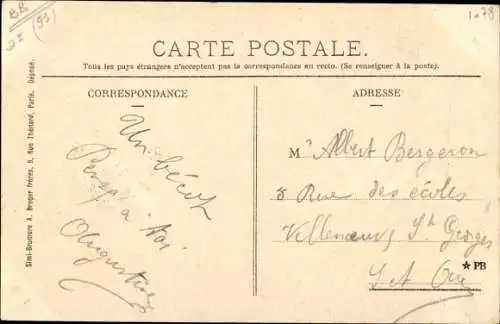 BB (93)
1078
CARTE POSTALE.
Tous les pays étrangers n'acceptent pas la correspondance au recto. (Se renseigner à la poste).
CORRESPONDANCE
ADRESSE
Simi-Bromure A. Breger frères, 9, Rue Thénard, Paris. Déposé.
Un bécot
à toi
Augustine
Mr Albert Bergeron
5 Rue des écoles
Villeneuve St Georges
★ PB
S et Oise